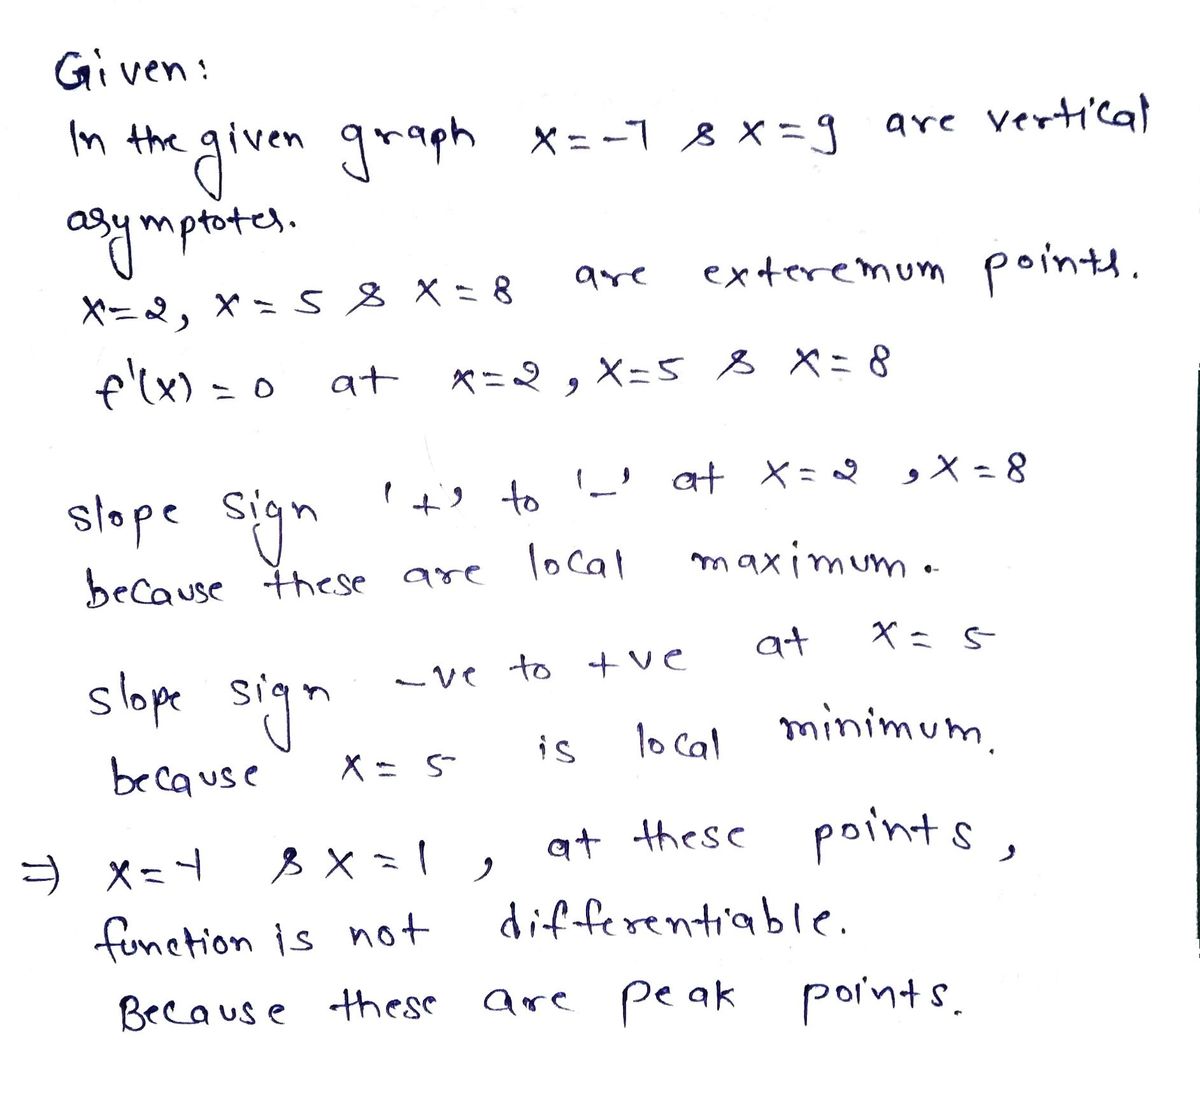 Given:
In the given graph x=-7 & x=9 are vertical
asymptotes.
x=2, x=5 & x=8 are exteremum points.
f'(x)=0 at x=2, x=5 & x=8
slope sign '+' to '-' at x=2, x=8
because these are local maximum.
slope sign -ve to +ve at x=5
because x=5 is local minimum.
⇒ x=-1 & x=1, at these points,
function is not differentiable.
Because these are peak points.